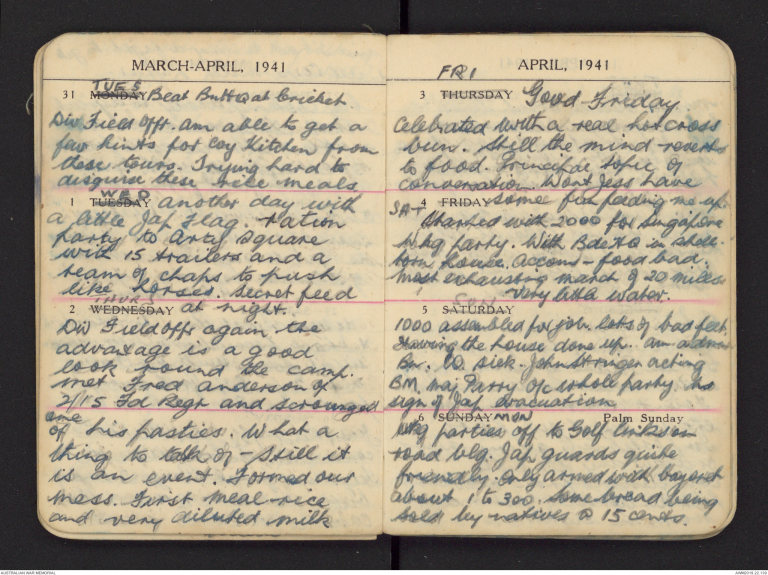 MARCH-APRIL, 1941
TUES
31 MONDAY Beat Butt Q at Cricket.
Div Field Offr. am able to get a
few hints for coy kitchen from
these tours. Trying hard to
disguise these rice meals
WED
1 TUESDAY another day with
a little Jap Flag. ration
party to Arty Square
with 15 trailers and a
team of chaps to push
like horses. Secret feed
THURS at night.
2 WEDNESDAY
Div Field Offr again, the
advantage is a good
look round the camp.
Met Fred Anderson of
2/15 Fd Regt and scrounged
one
of his pasties. What a
thing to talk of - still it
is an event. Formed our
mess. First meal - rice
and very diluted milk
APRIL, 1941
FRI
3 THURSDAY Good Friday.
Celebrated with a real hot cross
bun. Still the mind reverts
to food. Principle topic of
conversation. Won't Jess have
some fun feeding me up.
SAT
4 FRIDAY
Started with 2000 for Singapore
wkg party. With Bde HQ in shell-
torn house. Accom - food bad.
Most exhausting march of 20 miles
very little water.
SUN
5 SATURDAY
1000 assembled for job. lots of bad feet.
Having the house done up. am
Bn. CO sick. John Stringer acting
BM, Maj Parry O/C whole party. no
sign of Jap evacuation
6 SUNDAY MON Palm Sunday
Wkg parties off to Golf links on
road blg. Jap guards quite
friendly. Only armed with bayonet
about 1 to 300. Some bread being
sold by natives @ 15 cents.
AUSTRALIAN WAR MEMORIAL